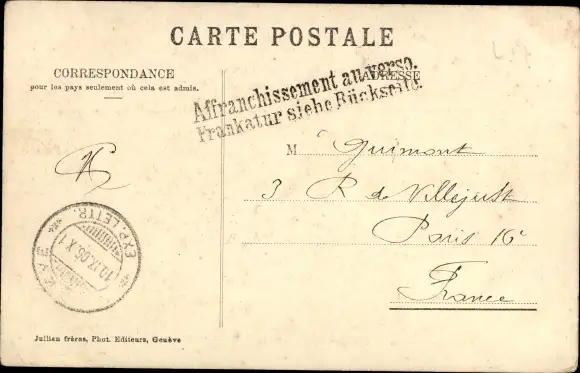 CARTE POSTALE
CORRESPONDANCE
pour les pays seulement où cela est admis.
ADRESSE
Affranchissement au verso.
Frankatur siehe Rückseite.
M Guimont
3 R de Villejust
Paris 16e
France
EXP. LETTR.
10.IX.05.X 1
Jullien frères, Phot. Editeurs, Genève